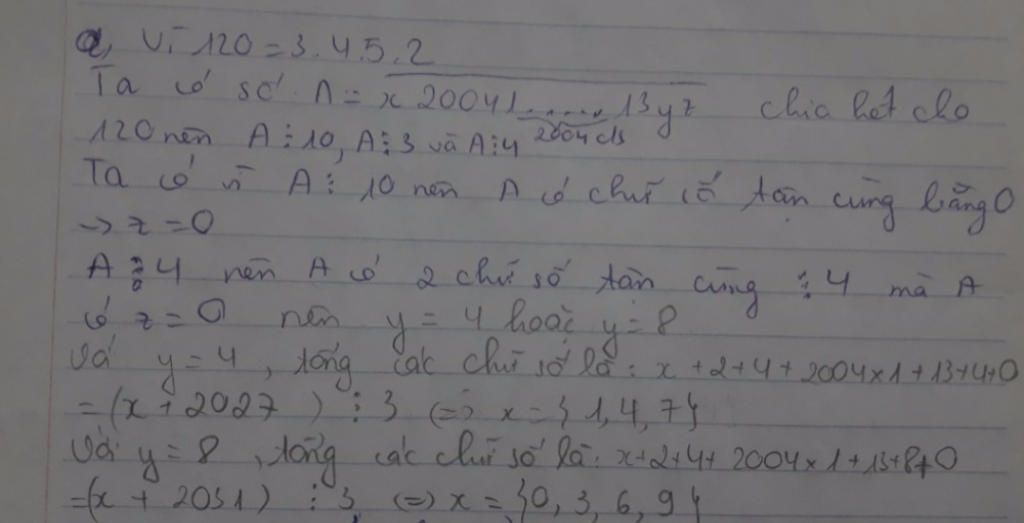 a, Vì 120 = 3.4.5.2
Ta có số A = x20041.....13yz chia hết cho
2004 c/s
120 nên A ⋮ 10, A ⋮ 3 và A ⋮ 4
Ta có vì A ⋮ 10 nên A có chữ số tận cùng bằng 0
→ z = 0
A ⋮ 4 nên A có 2 chữ số tận cùng ⋮ 4 mà A
có z = 0 nên y = 4 hoặc y = 8
Với y = 4, tổng các chữ số là: x + 2 + 4 + 2004 x 1 + 13 + 4 + 0
= (x + 2027) ⋮ 3 (=) x = {1, 4, 7}
Với y = 8, tổng các chữ số là: x + 2 + 4 + 2004 x 1 + 13 + 8 + 0
= (x + 2031) ⋮ 3 (=) x = {0, 3, 6, 9}